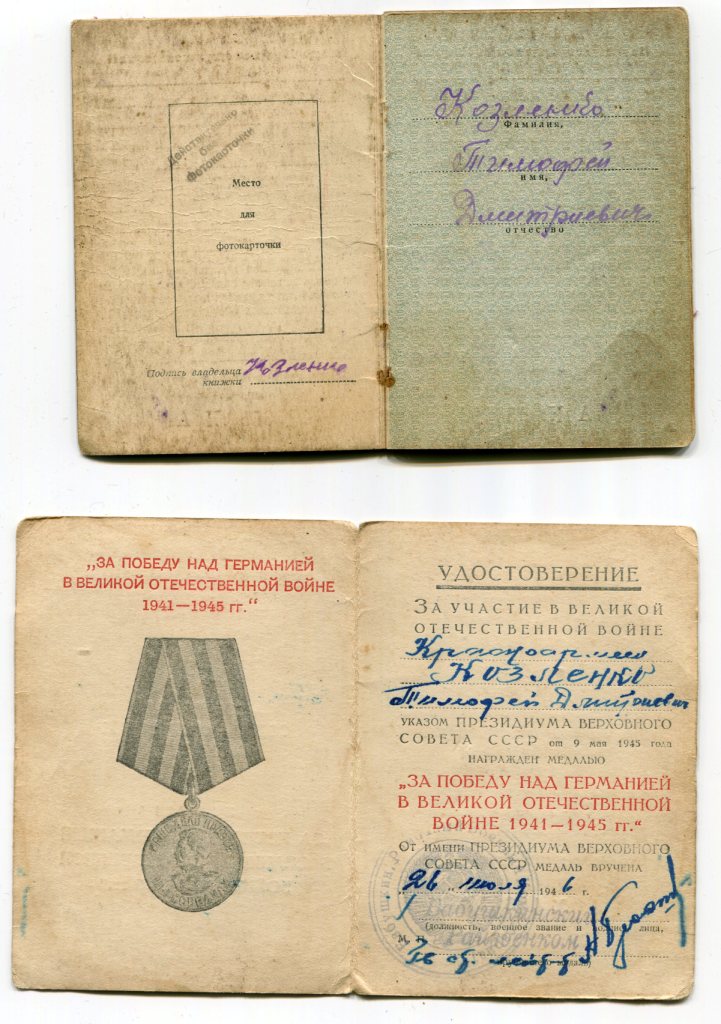 Действительно
без
фотокарточки
Место
для
фотокарточки
Подпись владельца
книжки
Козленко
Козленко
Фамилия,
Тимофей
имя,
Дмитриевич
отчество
„ЗА ПОБЕДУ НАД ГЕРМАНИЕЙ
В ВЕЛИКОЙ ОТЕЧЕСТВЕННОЙ ВОЙНЕ
1941—1945 гг.“
НАШЕ ДЕЛО ПРАВОЕ
МЫ ПОБЕДИЛИ
УДОСТОВЕРЕНИЕ
ЗА УЧАСТИЕ В ВЕЛИКОЙ
ОТЕЧЕСТВЕННОЙ ВОЙНЕ
Козленко
Тимофей Дмитриевич
УКАЗОМ ПРЕЗИДИУМА ВЕРХОВНОГО
СОВЕТА СССР от 9 мая 1945 года
НАГРАЖДЕН МЕДАЛЬЮ
„ЗА ПОБЕДУ НАД ГЕРМАНИЕЙ
В ВЕЛИКОЙ ОТЕЧЕСТВЕННОЙ
ВОЙНЕ 1941—1945 гг.“
От имени ПРЕЗИДИУМА ВЕРХОВНОГО
СОВЕТА СССР МЕДАЛЬ ВРУЧЕНА
„26“ июля 1946 г.
Бабушкинский
Райвоенком
(должность, военное звание и лица,
М. П.